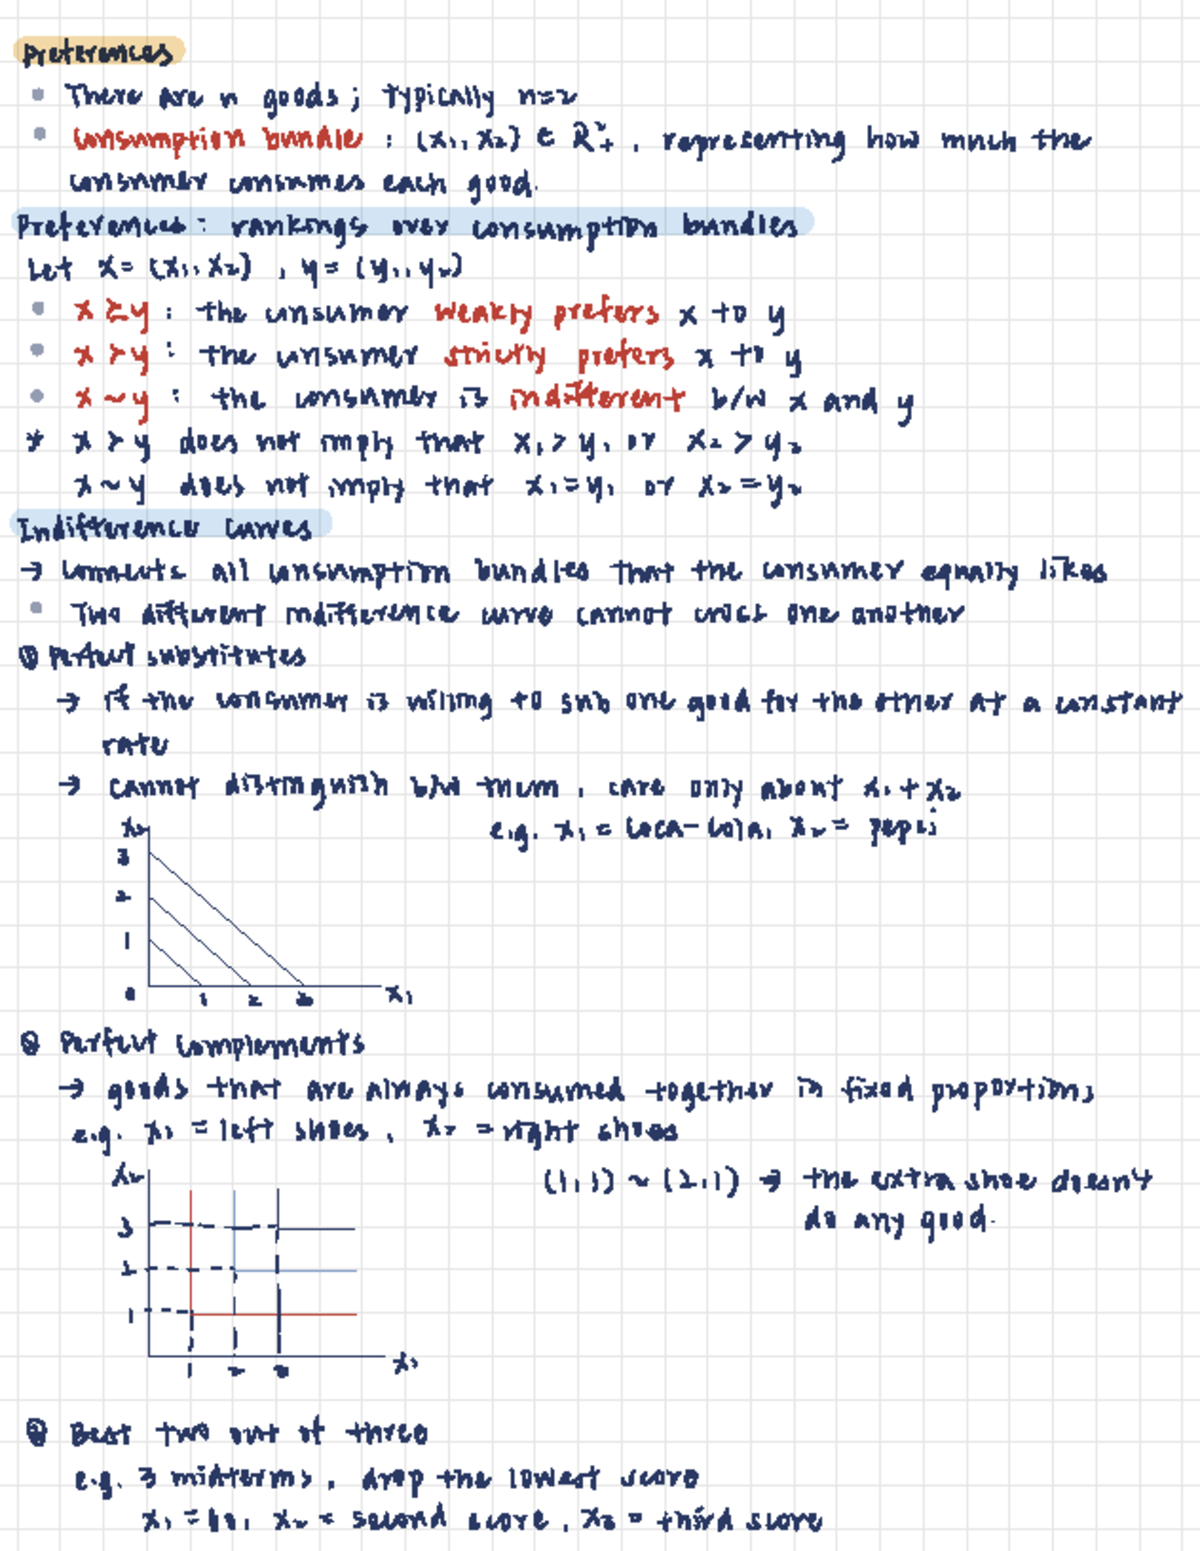 Preferences
• There are n goods; typically n=2
• consumption bundle : (x₁, x₂) ∈ ℝ²₊, representing how much the
consumer consumes each good.
Preferences: rankings over consumption bundles
Let x = (x₁, x₂) , y = (y₁, y₂)
• x ≿ y : the consumer weakly prefers x to y
• x ≻ y : the consumer strictly prefers x to y
• x ~ y : the consumer is indifferent b/w x and y
* x ≻ y does not imply that x₁ > y₁ or x₂ > y₂
x ~ y does not imply that x₁ = y₁ or x₂ = y₂
Indifference curves
→ connects all consumption bundles that the consumer equally likes
• Two different indifference curve cannot cross one another
① Perfect substitutes
→ if the consumer is willing to sub one good for the other at a constant
rate
→ cannot distinguish b/w them, care only about x₁ + x₂
e.g. x₁ = coca-cola, x₂ = pepsi
x₂
3
2
1
0 1 2 3 x₁
② Perfect complements
→ goods that are always consumed together in fixed proportions
e.g. x₁ = left shoes, x₂ = right shoes
(1,1) ~ (2,1) → the extra shoe doesn't
do any good.
x₂
3
2
1
1 2 3 x₁
③ Best two out of three
e.g. 3 midterms, drop the lowest score
x₁ = 60, x₂ = second score, x₃ = third score